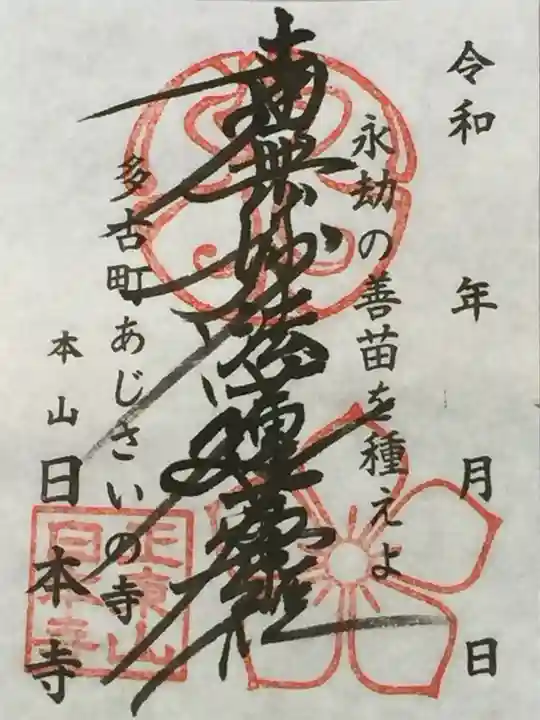 令和 年 月 日
永劫の善苗を種えよ
南無妙法蓮華経
多古町あじさいの寺
本山 日本寺
正東山
日本寺